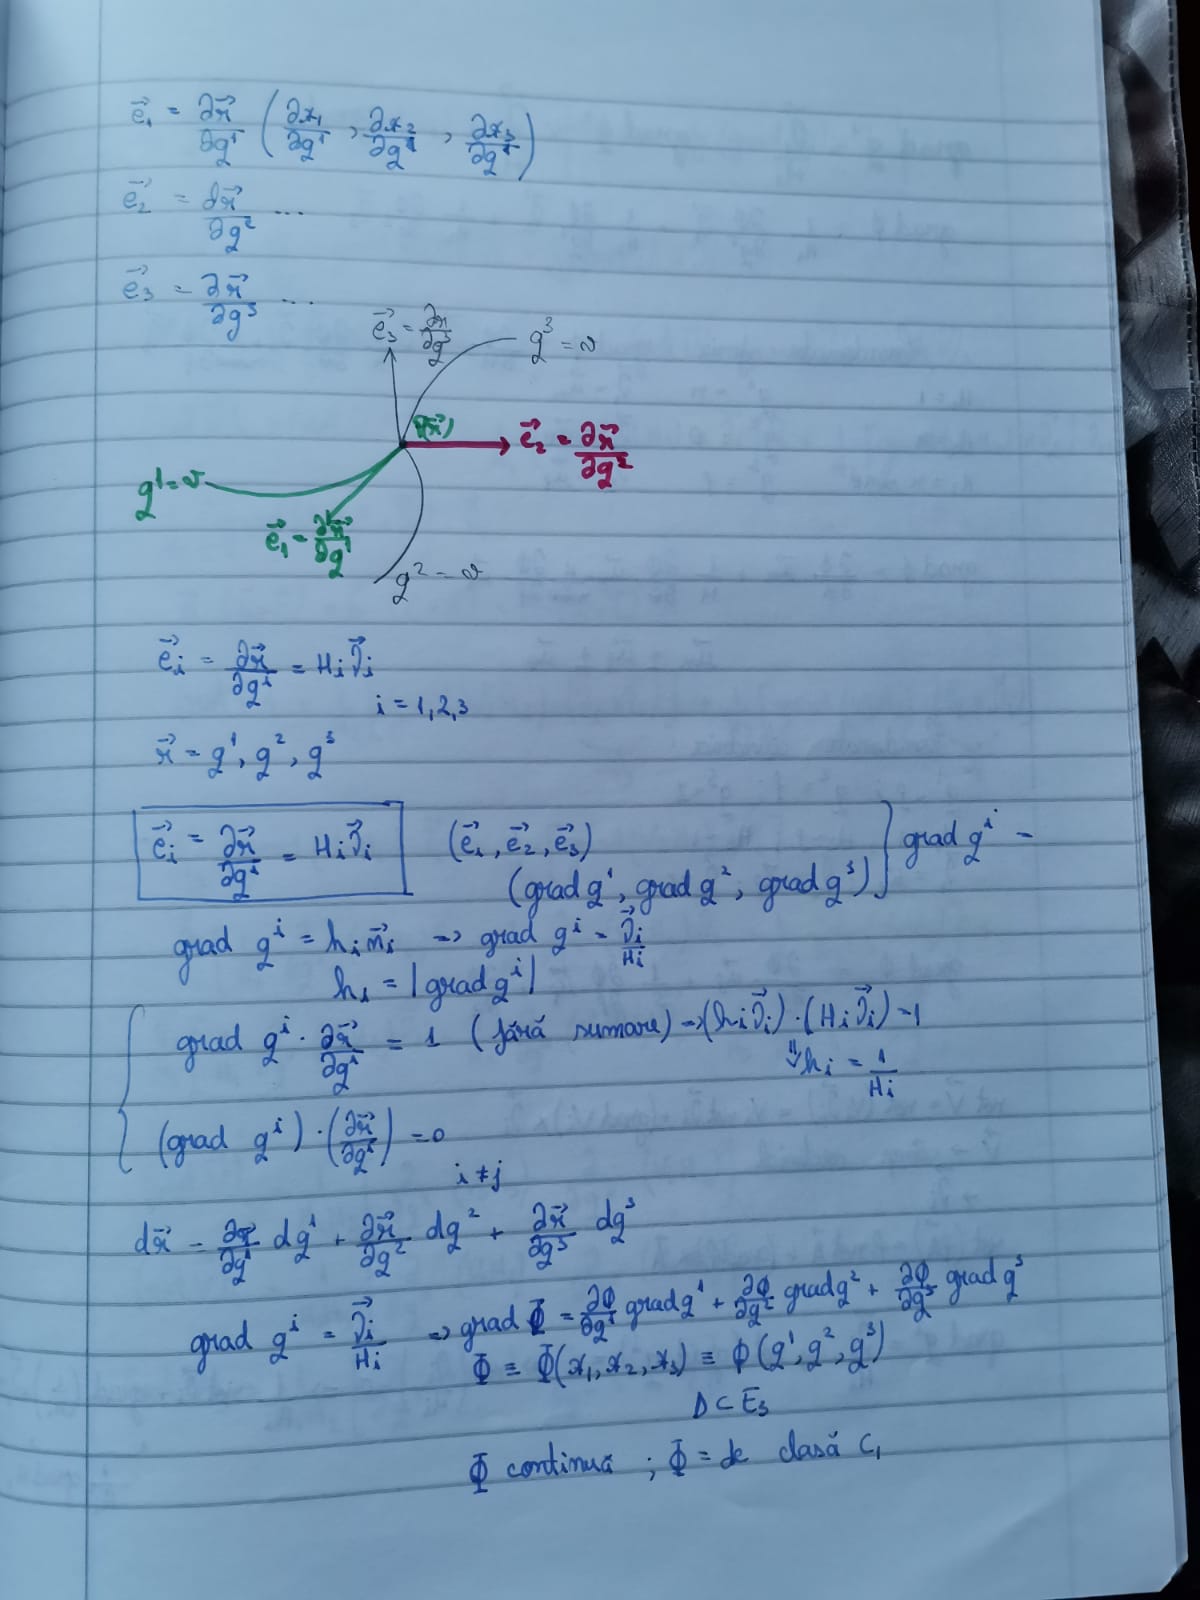 e⃗₁ = ∂r⃗/∂q¹ (∂x₁/∂q¹, ∂x₂/∂q¹, ∂x₃/∂q¹)
e⃗₂ = ∂r⃗/∂q² ...
e⃗₃ = ∂r⃗/∂q³ ...
e⃗₃ = ∂r/∂q³
q³ = v
P(r⃗)
e⃗₂ = ∂r⃗/∂q²
q¹ = v
e⃗₁ = ∂r⃗/∂q¹
q² = v
e⃗ᵢ = ∂r⃗/∂qⁱ = Hᵢ J⃗ᵢ
i = 1,2,3
r⃗ = q¹, q², q³
e⃗ᵢ = ∂r⃗/∂qⁱ = Hᵢ J⃗ᵢ (e⃗₁, e⃗₂, e⃗₃) } grad qⁱ =
(grad q¹, grad q², grad q³)
grad qⁱ = hᵢ n⃗ᵢ => grad qⁱ = J⃗ᵢ/Hᵢ
hᵢ = |grad qⁱ|
grad qⁱ · ∂r⃗/∂qⁱ = 1 (fără sumare) => (hᵢ J⃗ᵢ) · (Hᵢ J⃗ᵢ) = 1
⇓ hᵢ = 1/Hᵢ
(grad qⁱ) · (∂r⃗/∂qⁱ) = 0
i ≠ j
dr⃗ = ∂r⃗/∂q¹ dq¹ + ∂r⃗/∂q² dq² + ∂r⃗/∂q³ dq³
grad qⁱ = J⃗ᵢ/Hᵢ => grad Φ = ∂Φ/∂q¹ grad q¹ + ∂Φ/∂q² grad q² + ∂Φ/∂q³ grad q³
Φ ≡ Φ(x₁, x₂, x₃) ≡ Φ(q¹, q², q³)
D ⊂ E₃
Φ continuă ; Φ = de clasă C₁